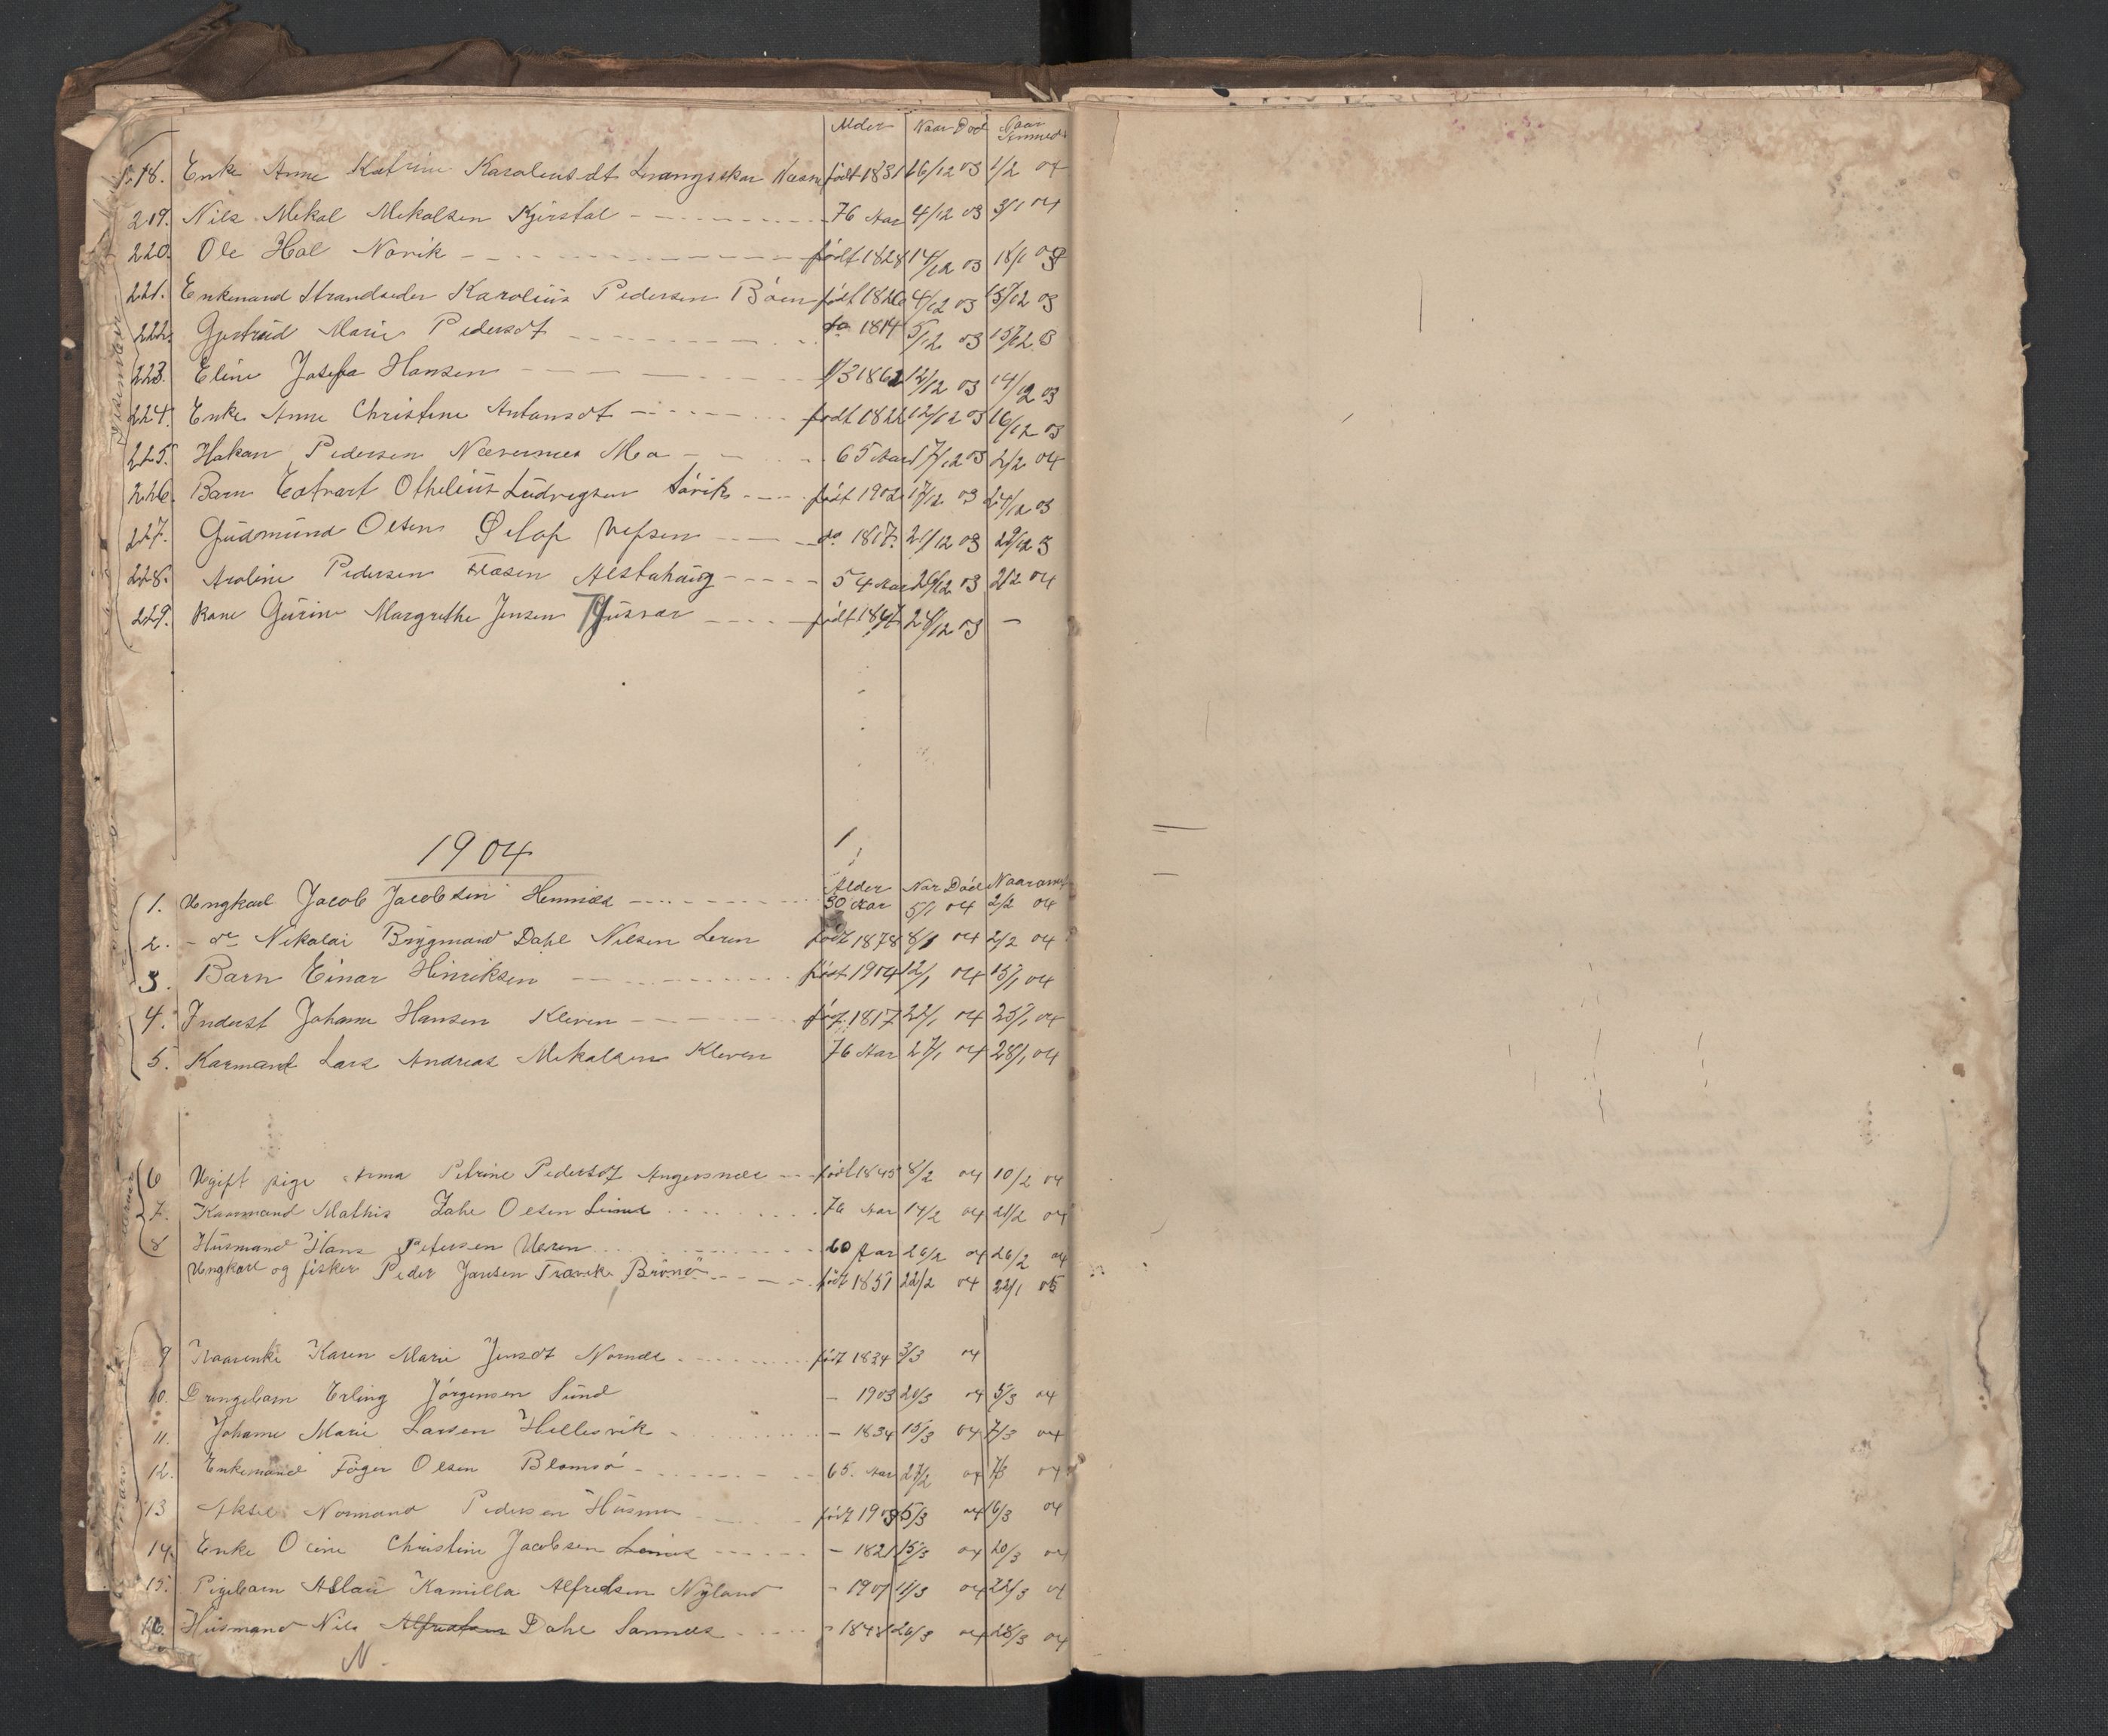 Alder Naar Död Naar Anmeld
218. Enke Anne Katrine Karoliusdt Levangsskar Næsne født 1831 16/12 03 1/2 04
219. Nils Mikal Mikalsen Kjerstal 76 Aar 4/12 03 3/1 04
220. Ole Hol Norvik født 1828 14/12 03 18/1 04
221. Enkemand Strandsider Karolius Pedersen Böen født 1826 4/12 03 13/12 03
222. Gjertrud Marie Pedersdt do 1814 5/12 03 13/12 3
223. Eline Josefa Hansen 1/3 1862 12/12 03 14/12 03
224. Enke Anne Christine Antonsdt födt 1822 12/12 03 16/12 03
225. Hakan Pedersen Nævernes Mo 65 Aar 17/12 03 2/2 04
226. Barn Edvart Othelius Ludvigsen Sörvik født 1902 17/12 03 24/12 03
227. Gudmund Olsen Vefsen do 1817 21/12 03 29/12 3
228. Aroline Pedersen Alstahaug 54 Aar 26/12 03 2/2 04
229. Kone Gurine Margrethe Jensen Husvær født 24/12 03 –
1904
Alder Nar Död Naar anm
1. Ungkarl Jacob Jacobsen Hemnes 30 Aar 5/1 04 2/2 04
2. – do Nikolai Brygmand Dahl Nilsen Leren født 1878 8/1 04 2/2 04
3. Barn Einar Hinriksen født 1904 12/1 04 15/1 04
4. Inderst Johanne Hansen Kleven föd. 1817 22/1 04 25/1 04
5. Kaarmand Lars Andreas Mikalsen Kleven 76 Aar 27/1 04 28/1 04
6 Ugift pige Anna Petrine Pedersdt Angersnes født 1845 8/2 04 10/2 04
7. Kaarmand Mathis Zahl Olsen 76 Aar 14/2 04 21/2 04
8 Husmand Hans Petersen 60 Aar 26/2 04 26/2 04
Ungkarl og fisker Peder Jansen Brönö født 1851 22/2 04 22/1 05
9 Kaarenke Karen Marie Jensdt födt 1824 3/3 04
10. Drengebarn Erling Jörgensen Sund – 1903 20/3 04 5/3 04
11. Johanne Marie Larsen Hellesvik – 1834 15/3 04 7/3 04
12. Enkemand Olsen Blomsö 65. Aar 27/2 04 7/3 04
13 Aksel Normand Pedersen Husmo födt 1903 5/3 04 16/3 04
14. Enke Oline Christine Jacobsen – 1821 15/3 04 20/3 04
15. Pigebarn Aslau Kamilla Alfredsen Nyland – 1901 11/3 04 22/3 04
16. Husmand Nils Alfredsen Dahl Sannes – 1848 26/3 04 28/3 04
N.